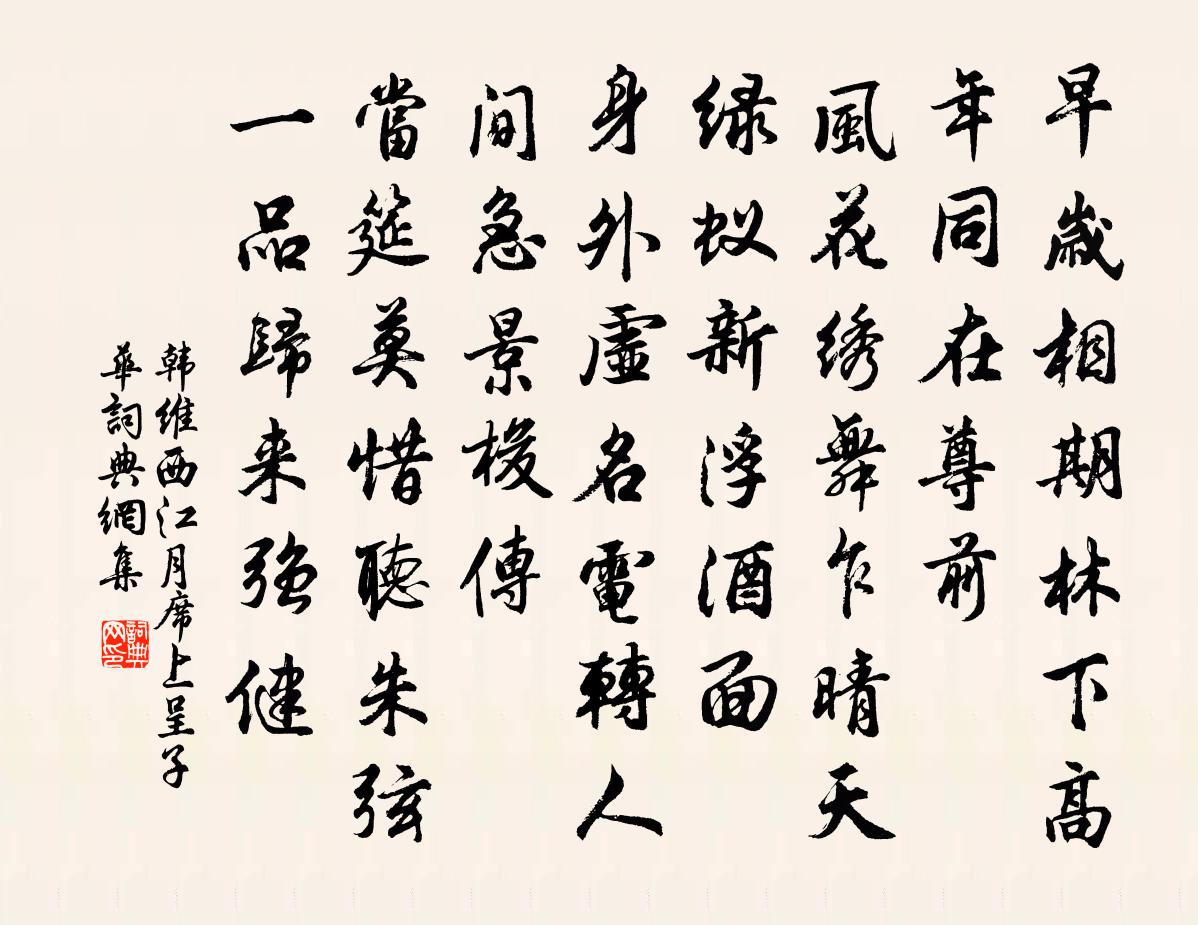 早歲相期林下高
年同在尊前
風花绣舞乍晴天
绿蚁新浮酒面
身外虛名電轉人
间急景梭傳
當筵莫惜聽朱弦
一品歸来強健
韩维西江月席上呈子
華詞典網集
詞典网印